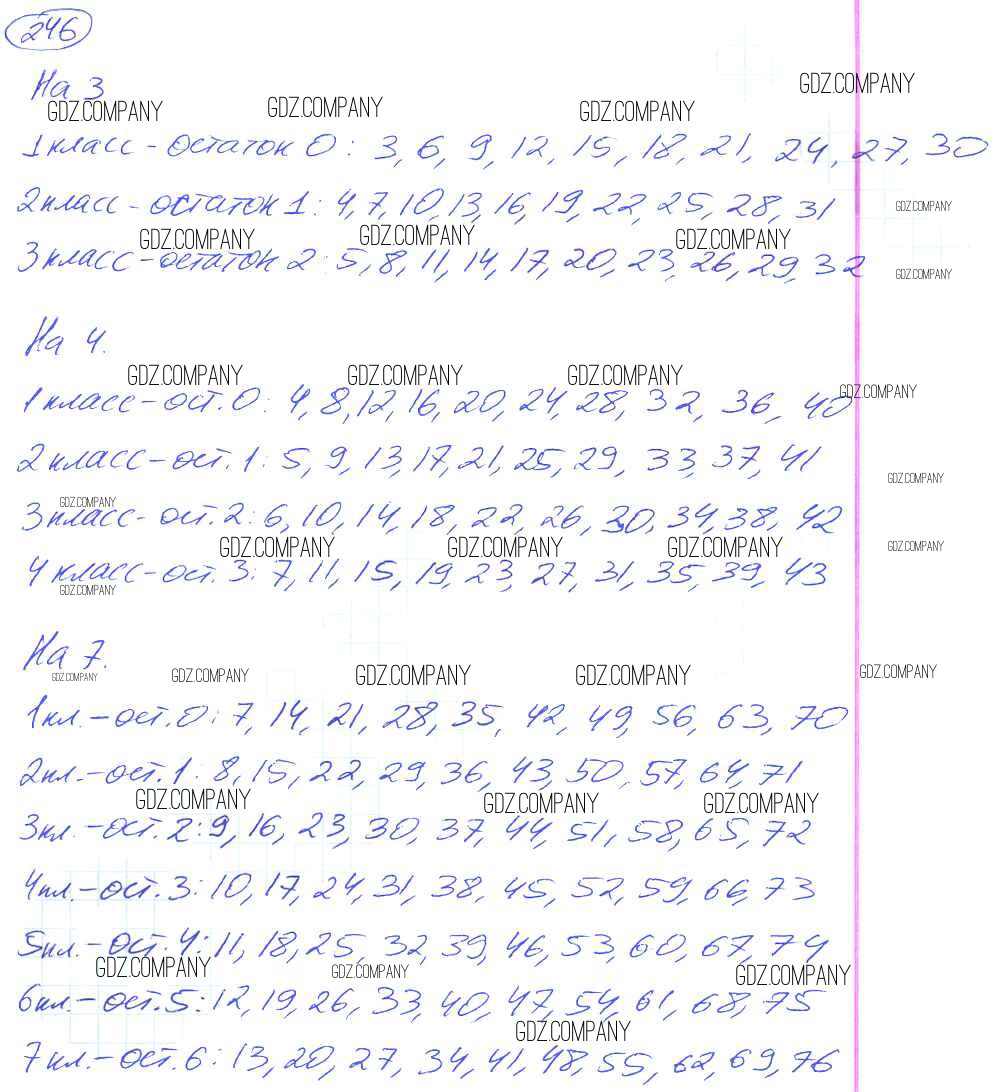 246
На 3
GDZ.COMPANY GDZ.COMPANY GDZ.COMPANY GDZ.COMPANY
1 класс - остаток 0: 3, 6, 9, 12, 15, 18, 21, 24, 27, 30
2 класс - остаток 1: 4, 7, 10, 13, 16, 19, 22, 25, 28, 31
GDZ.COMPANY
GDZ.COMPANY GDZ.COMPANY GDZ.COMPANY
3 класс - остаток 2: 5, 8, 11, 14, 17, 20, 23, 26, 29, 32
GDZ.COMPANY
На 4.
GDZ.COMPANY GDZ.COMPANY GDZ.COMPANY GDZ.COMPANY
1 класс - ост. 0: 4, 8, 12, 16, 20, 24, 28, 32, 36, 40
2 класс - ост. 1: 5, 9, 13, 17, 21, 25, 29, 33, 37, 41
GDZ.COMPANY
GDZ.COMPANY
3 класс - ост. 2: 6, 10, 14, 18, 22, 26, 30, 34, 38, 42
GDZ.COMPANY GDZ.COMPANY GDZ.COMPANY GDZ.COMPANY
4 класс - ост. 3: 7, 11, 15, 19, 23, 27, 31, 35, 39, 43
GDZ.COMPANY
На 7.
GDZ.COMPANY GDZ.COMPANY GDZ.COMPANY GDZ.COMPANY GDZ.COMPANY
1 кл. - ост. 0: 7, 14, 21, 28, 35, 42, 49, 56, 63, 70
2 кл. - ост. 1: 8, 15, 22, 29, 36, 43, 50, 57, 64, 71
GDZ.COMPANY GDZ.COMPANY GDZ.COMPANY
3 кл. - ост. 2: 9, 16, 23, 30, 37, 44, 51, 58, 65, 72
4 кл. - ост. 3: 10, 17, 24, 31, 38, 45, 52, 59, 66, 73
5 кл. - ост. 4: 11, 18, 25, 32, 39, 46, 53, 60, 67, 74
GDZ.COMPANY GDZ.COMPANY GDZ.COMPANY
6 кл. - ост. 5: 12, 19, 26, 33, 40, 47, 54, 61, 68, 75
GDZ.COMPANY
7 кл. - ост. 6: 13, 20, 27, 34, 41, 48, 55, 62, 69, 76